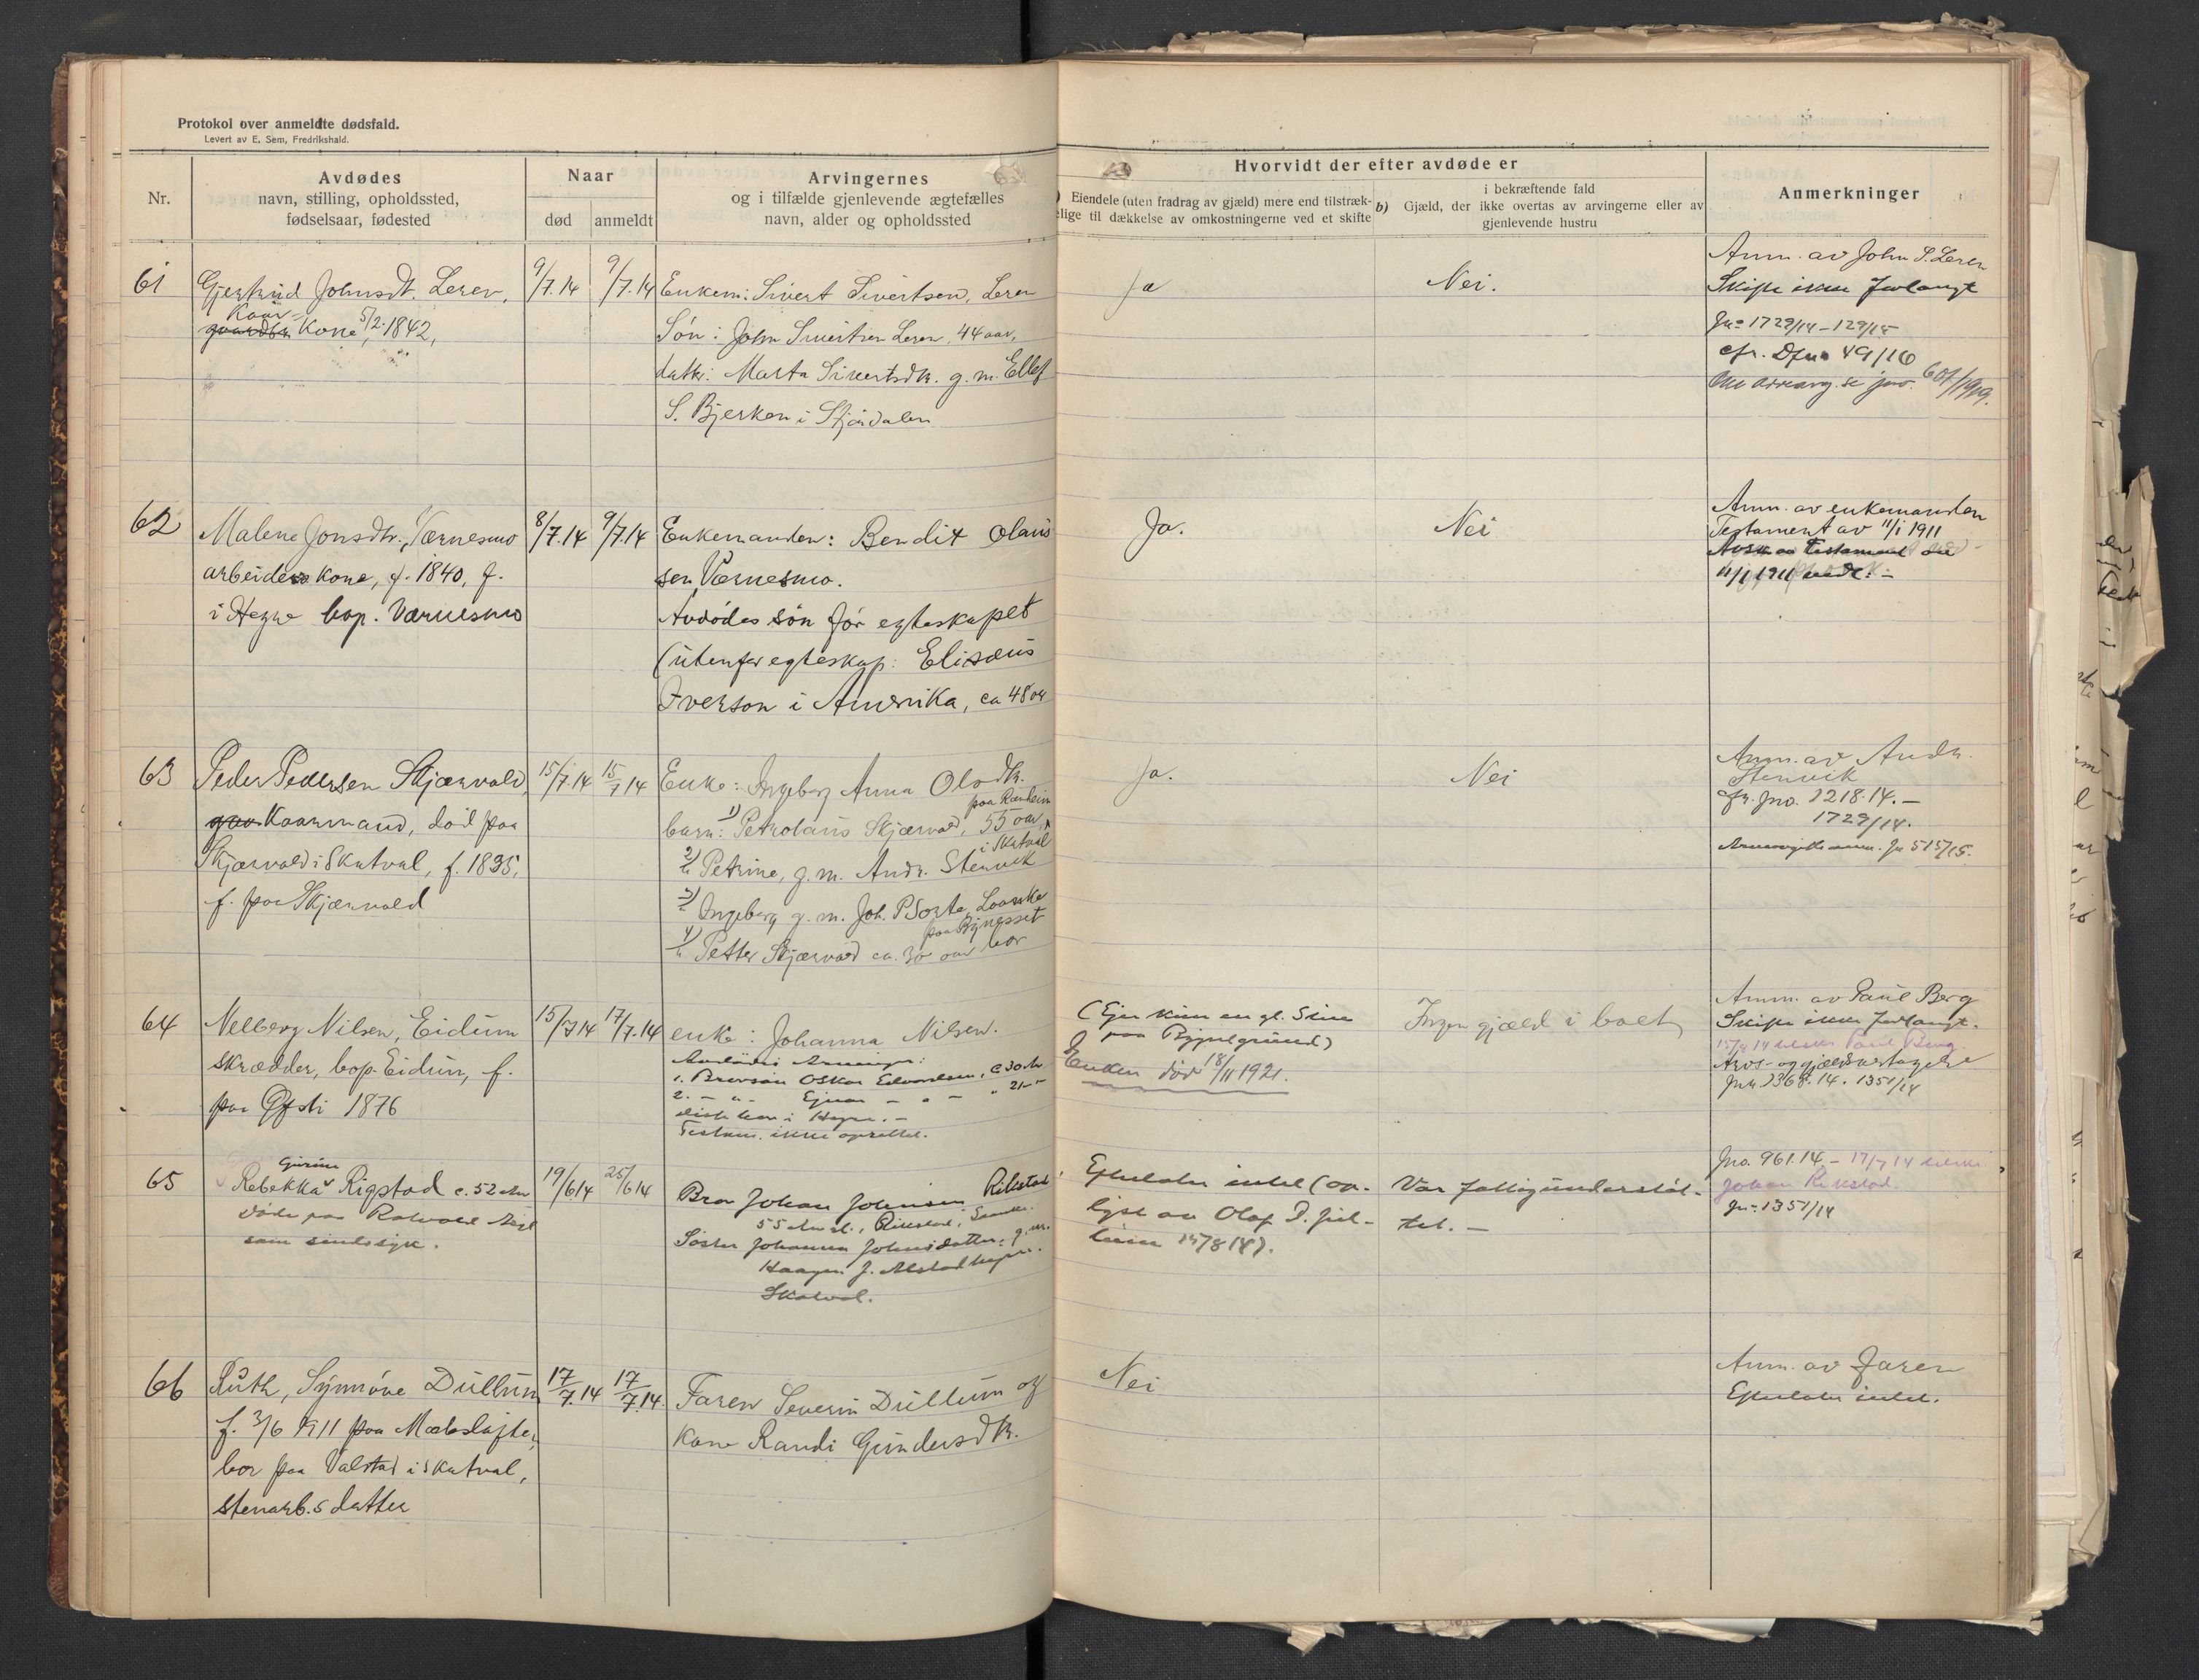 Protokol over anmeldte dødsfald.
Levert av E. Sem, Fredrikshald.
Nr.
Avdødes
navn, stilling, opholdssted,
fødselsaar, fødested
Naar
død
anmeldt
Arvingernes
og i tilfælde gjenlevende ægtefælles
navn, alder og opholdssted
Hvorvidt der efter avdøde er
Eiendele (uten fradrag av gjæld) mere end tilstræk-
elige til dækkelse av omkostningerne ved et skifte
b)
i bekræftende fald
Gjæld, der ikke overtas av arvingerne eller av
gjenlevende hustru
Anmerkninger
61
Gjertrud Johnsdt. Leren,
Kaar-
kone, 5/2 1842,
9/7.14
9/7.14
Enkem: Sivert Sivertsen, Leren
Søn: John Sivertsen Leren, 44 aar,
datter: Marta Sivertsdtr. g. m. Ellef
S. Bjerken i Stjørdalen
Ja
Nei.
Anm. av John S. Leren
Skifte ikke forlangt
Jno 1729/14 - 129/15
cfr. Dfno 49/16
se jno. 607/1919.
62
Malene Jonsdtr. Værnesmo
arbeiderkone, f. 1840, f.
i Hegre bop. Værnesmo
8/7.14
9/7.14
Enkemanden: Bendit Olaus
sen Værnesmo.
Avdødes søn før egteskapet
(utenfor egteskap: Elisæus
Iverson i Amerika, ca 48 aar
Ja.
Nei
Anm. av enkemanden
Testament av 11/1 1911
63
Peder Pedersen Skjærvold,
Kaarmand, død paa
Skjærvold i Skatval, f. 1835,
f. paa Skjærvold
15/7.14
15/7 14
Enke: Ingeborg Anna Olsdtr.
paa Ranheim
barn: 1) Petrolaus Skjærvold, 55 aar,
i Skatval
2) Petrine, g. m. Andr. Stenvik
3) Ingeborg g. m. Joh. P. Sorte,
paa Bynesset
4) Petter Skjærvold ca. 30 aar bor
Ja.
Nei
Anm. av Andr.
Stenvik
cfr. Jno. 1218.14. -
1729/14.
Jn 515/15.
64
Nelberg Nilsen, Eidum
skrædder, bop. Eidum, f.
paa Øfsti 1876
15/7 14
17/7.14
enke: Johanna Nilsen.
Avdødes Arvinger:
1. Brorsøn Oskar Edvardsen, c 30 År
2. - " - Ejnar - " - " 21 - "
i Hegre. -
Testam. ikke oprettet.
(Ejer kun en gl. Stue
paa Bygselgrund)
Enken død 18/11 1921.
Ingen gjæld i boet
Anm. av Paul Berg
Skifte ikke forlangt.
Paul Berg.
Arvs- og gjældsvertagelse
Jno 1368.14. 1351/14
65
Gurine
Rebekka Rigstad c. 52 År
døde paa Rotvold Asyl
som sindssyk.
19/6 14
25/6 14
Bror Johan Johnsen Rikstad
55 År gl., Rikstad,
Søster Johanna Johnsdatter, g. m.
Haagen J. Alstad
Skatval.
Efterlader intet (op-
lyst av Olaf P.
15/8 14).
Var fattigunderstøt-
tet. -
Jno. 961.14 - 17/7 14
Johan Rikstad.
Jn 1351/14
66
Ruth, Synnøve Dullum
f. 3/6 1911 paa Mæbsløften
bor paa Valstad i Skatval,
stenarb.s datter
17/7.14
17/7.14.
Faren Severin Dullum og
kone Randi Gundersdtr.
Nei
Anm. av Faren
Efterlader intet.